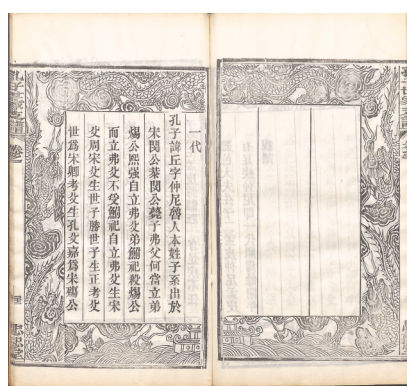 一代
孔子諱丘字仲尼魯人本姓子系出於
宋閔公葉閔公薨子弗父何當立弟
煬公熙强自立弗父弟鮒祀殺煬公
而立弗父不受鮒祀自立弗父生宋
父周宋父生世子勝世子生正考父
世爲宋卿考父生孔父嘉爲宋穆公